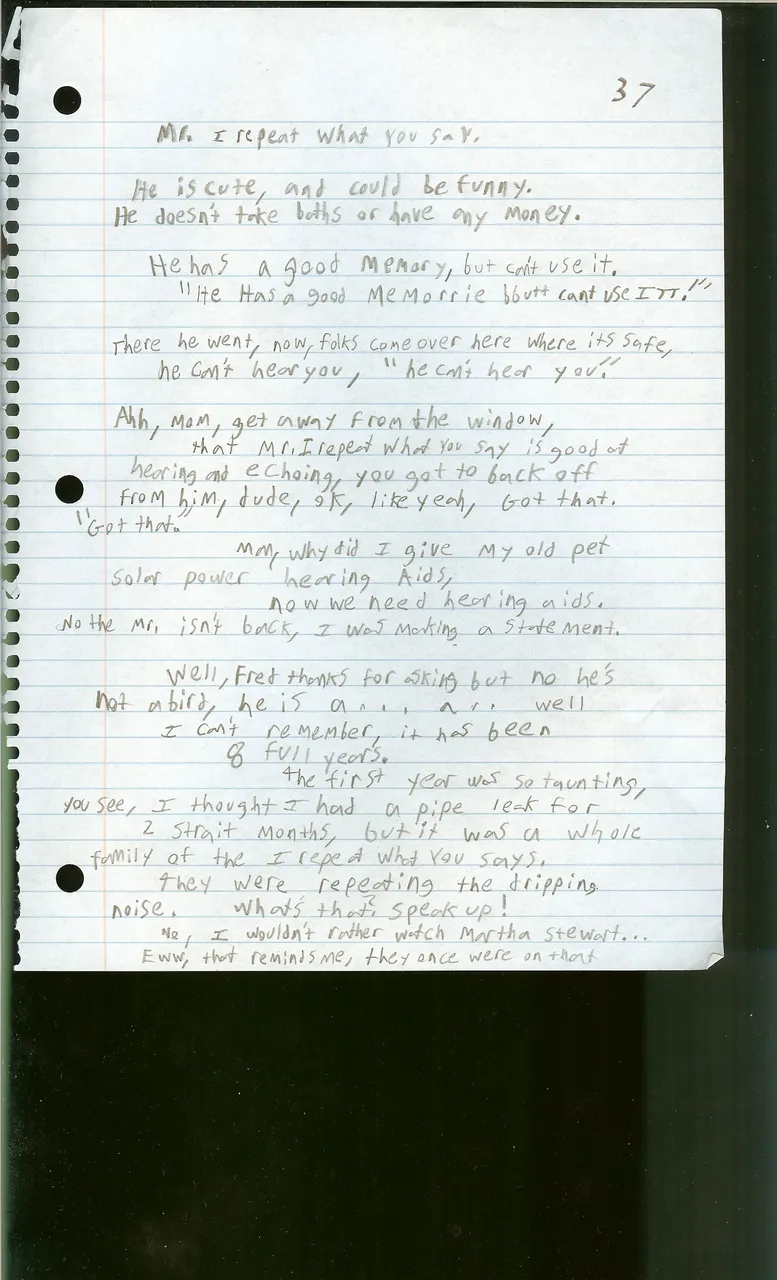 37
Mr. I repeat what you say.
He is cute, and could be funny.
He doesn't take baths or have any money.
He has a good memory, but can't use it.
"He Has a good MeMorrie bbutt cant use ITT."
There he went, now, folks come over here where its safe,
he can't hear you, "he can't hear you."
Ahh, Mom, get away from the window,
that Mr. I repeat what you say is good at
hearing and echoing, you got to back off
from him, dude, ok, like yeah, Got that.
"Got that."
Man, why did I give my old pet
solar power hearing Aids,
now we need hearing aids.
No the Mr. isn't back, I was making a statement.
Well, Fred thanks for asking but no he's
not a bird, he is a... a... well
I can't remember, it has been
8 full years.
the first year was so taunting,
you see, I thought I had a pipe leak for
2 strait months, but it was a whole
family of the I repeat what you says.
they were repeating the dripping
noise. What's that? speak up!
No, I wouldn't rather watch Martha Stewart...
Eww, that reminds me, they once were on that